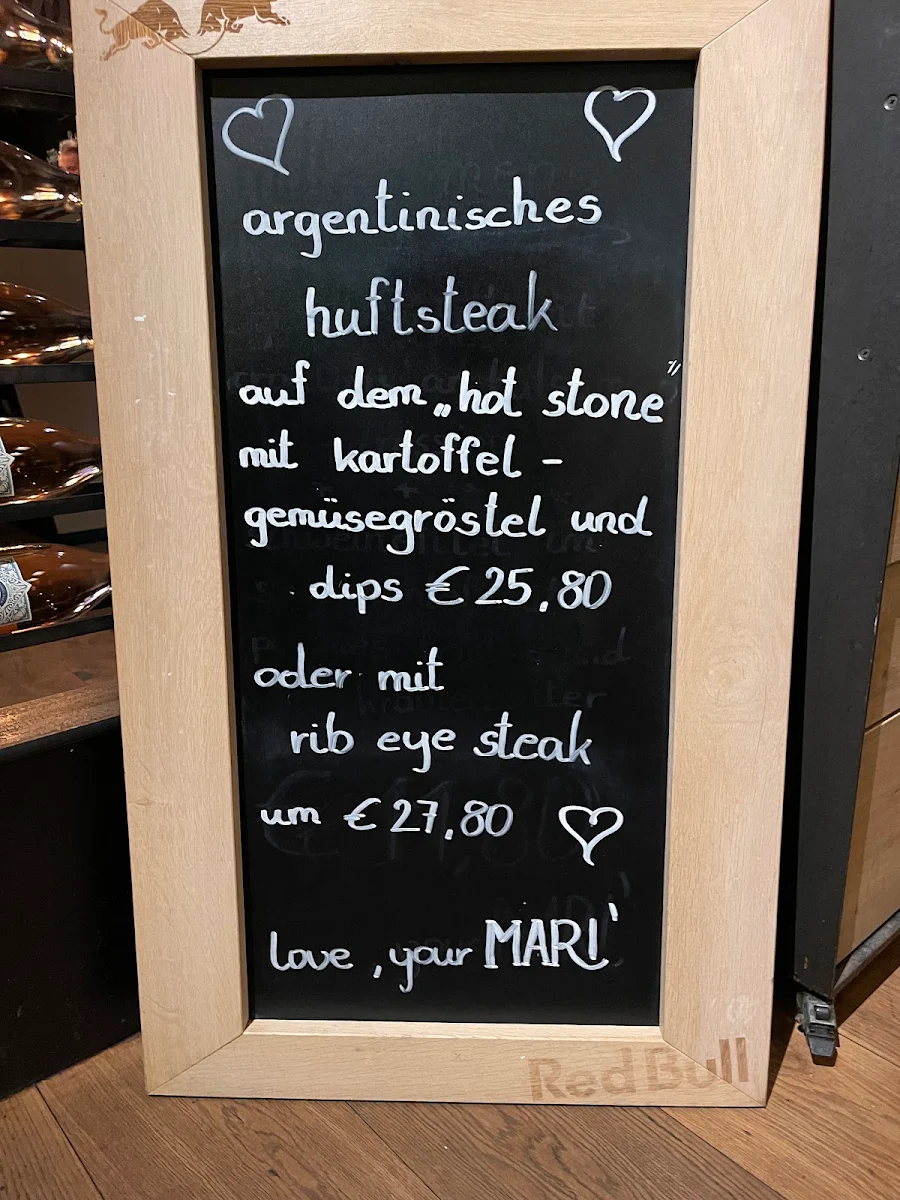 argentinisches
huftsteak
auf dem „hot stone"
mit kartoffel -
gemüsegröstel und
dips € 25,80
oder mit
rib eye steak
um € 27,80
love, your MARI'
Red Bull